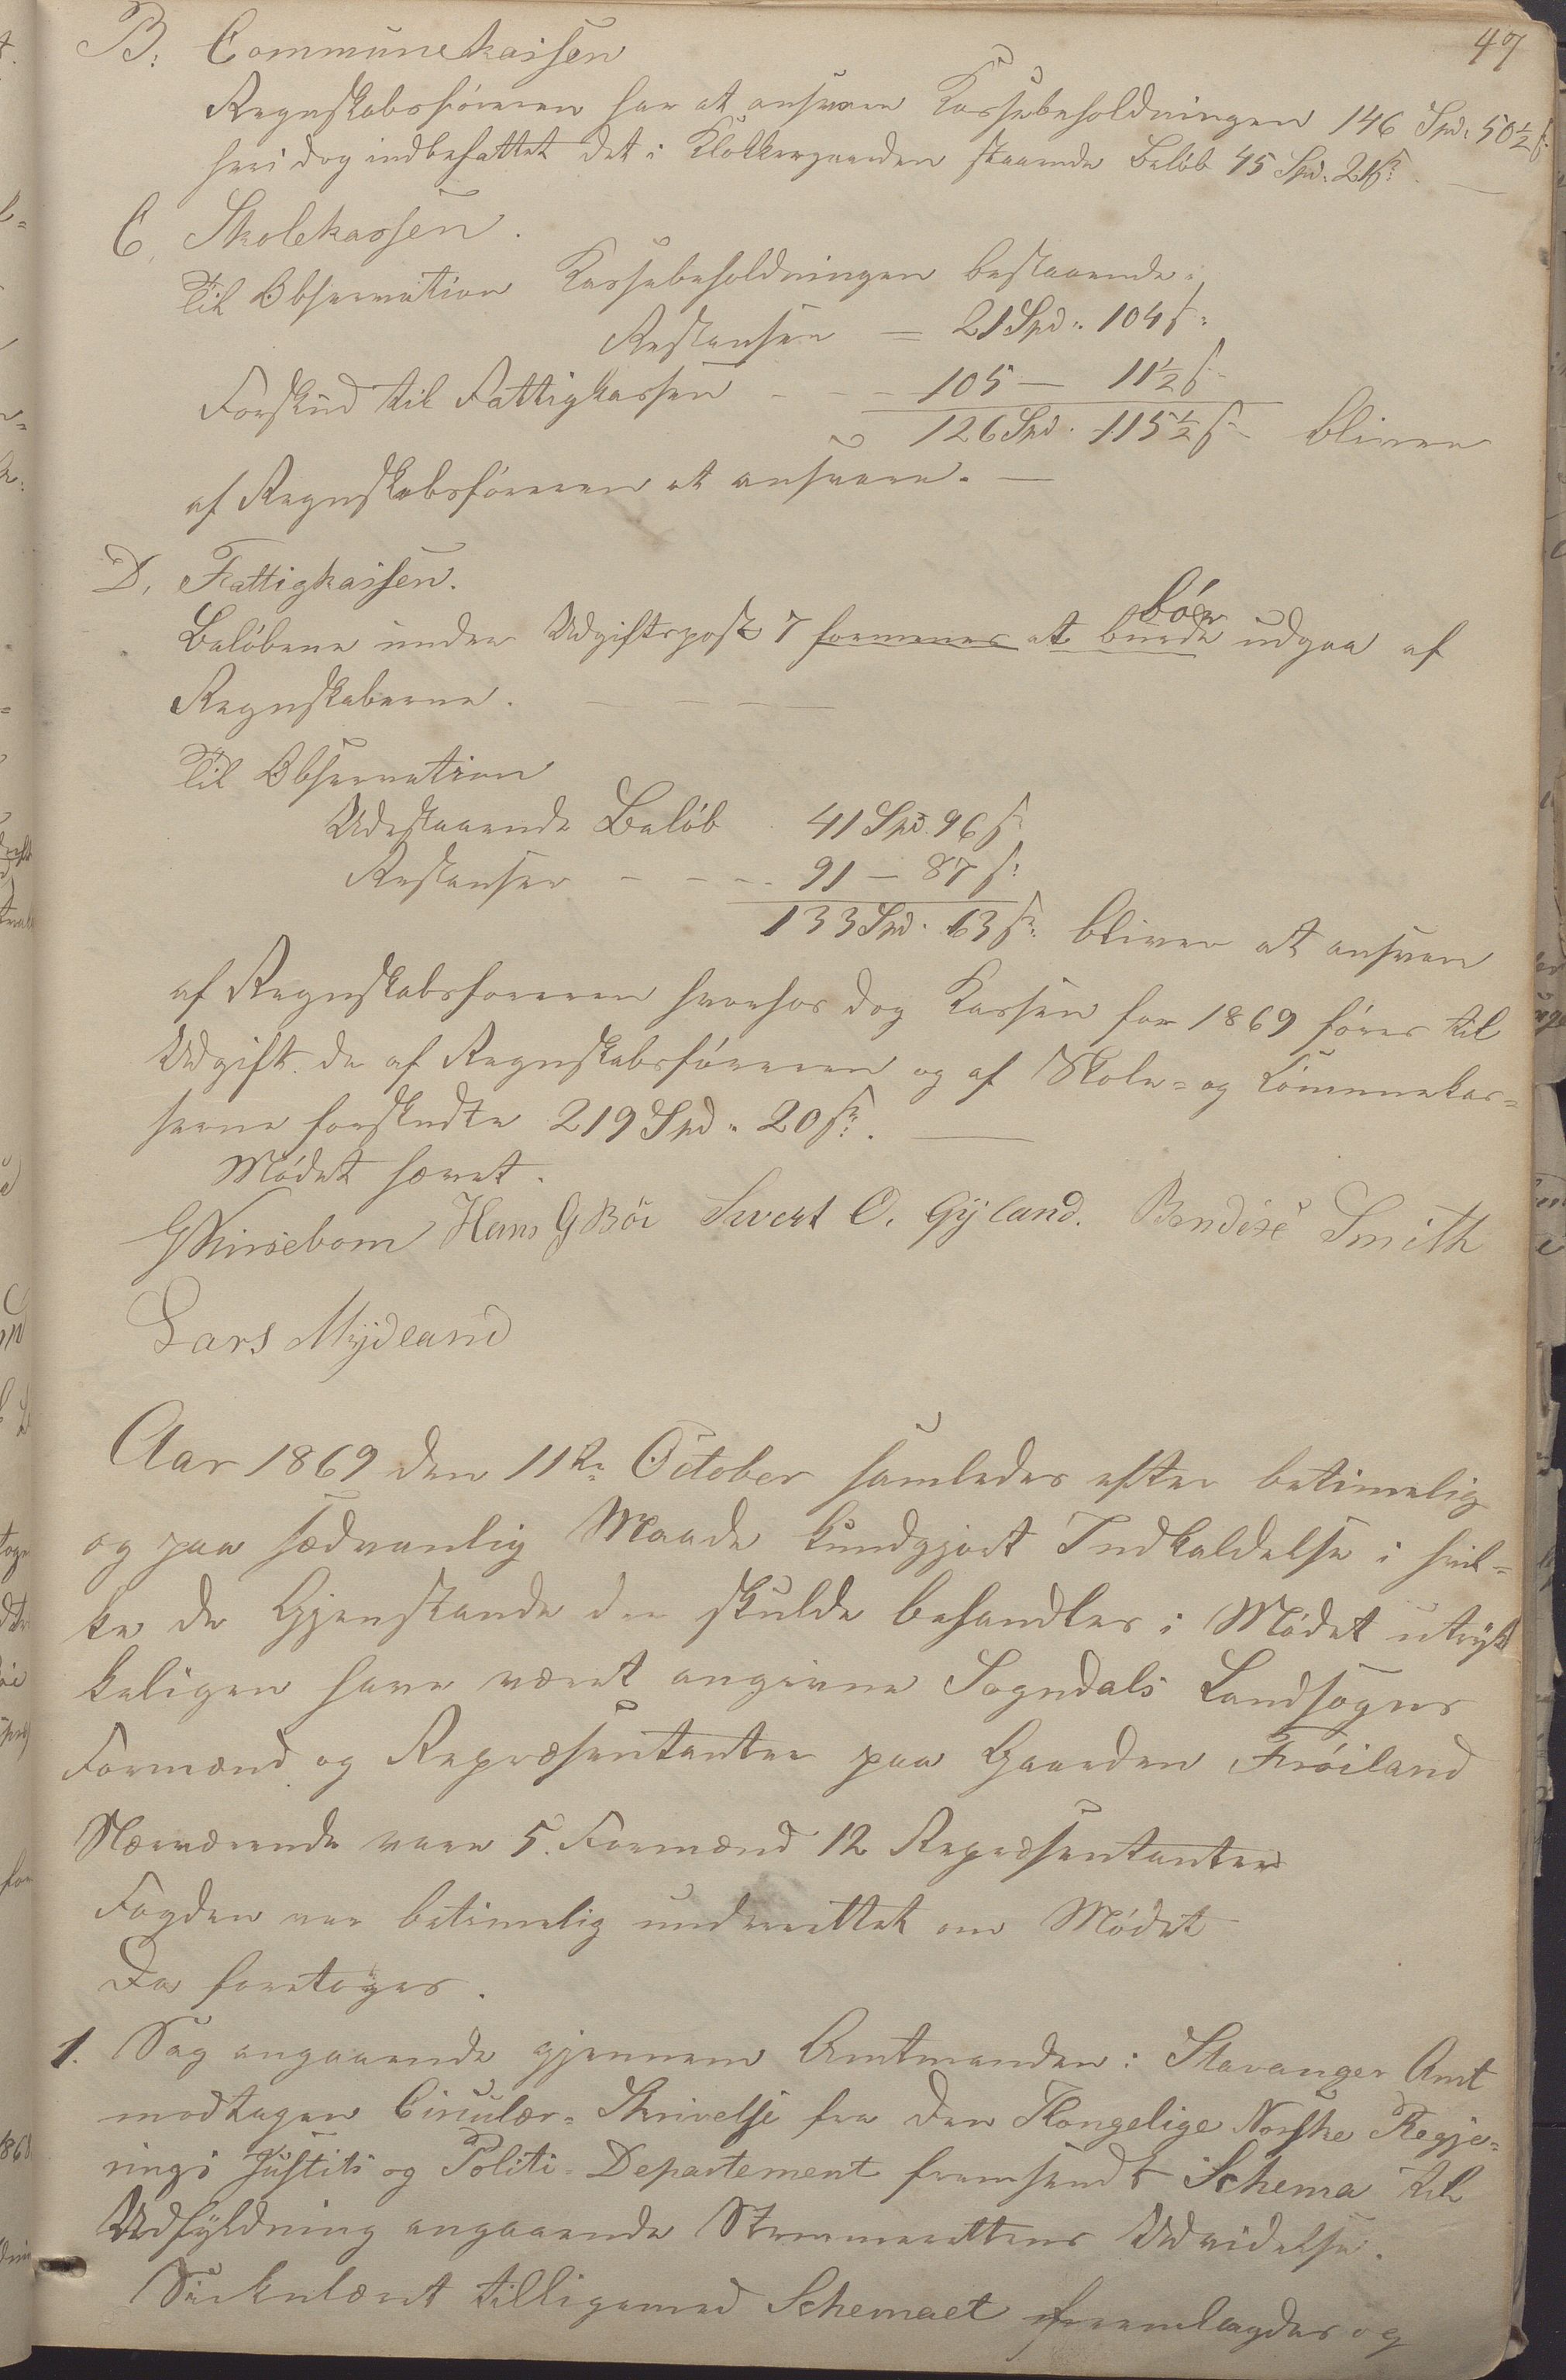 47
B: Communekassen
Regnskabsføreren har at ansvare Kassebeholdningen 146 Spd. 50½ ß.
heri dog indbefattet det i Klokkergaarden staaende Beløb 45 Spd. 21 ß.
C, Skolekassen.
Til Observation Kassebeholdningen bestaaende:
Restanser = 21 Spd. 104 ß:
Forskud til Fattigkassen - - - 105 — 11½ ß
126 Spd. 115½ ß bliver
af Regnskabsføreren at ansvare. —
D, Fattigkassen.
bør
Beløbene under Udgiftspost 7 formenes at burde udgaa af
Regnskaberne.
Til Observation
Udestaaende Beløb 41 Spd. 96 ß
Restanser - - - - 91 — 87 ß:
133 Spd. 63 ß: bliver at ansvare
af Regnskabsføreren hvorhos dog Kassen for 1869 fører til
Udgift de af Regnskabsføreren og af Skole- og Kommunekas-
serne forskudte 219 Spd. 20 ß. —
Mødet hævet.
Hans G Bøe Sivert O. Gÿland. Smith
Lars Mÿdland
Aar 1869 den 11te October samledes efter betimelig
og paa sædvanlig Maade kundgjort Indkaldelse i hvil-
ke de Gjenstande der skulde behandles i Mødet utryk
keligen have været angivne Sogndals Landsogns
Formænd og Repræsentanter paa Gaarden Frøiland
Nærværende vare 5. Formænd 12 Repræsentanter
Fogden var betimelig underrettet om Mødet
Da foretoges.
1. Sag angaaende gjennem Amtmanden i Stavanger Amt
modtagen Circulær-Skrivelse fra den Kongelige Norske Regje-
rings Justits og Politi-Departement fremsendt Schema til
Udfyldning angaaende Stemmerettens Udvidelse.
Sirkulæret tilligemed Schemaet fremlagdes og